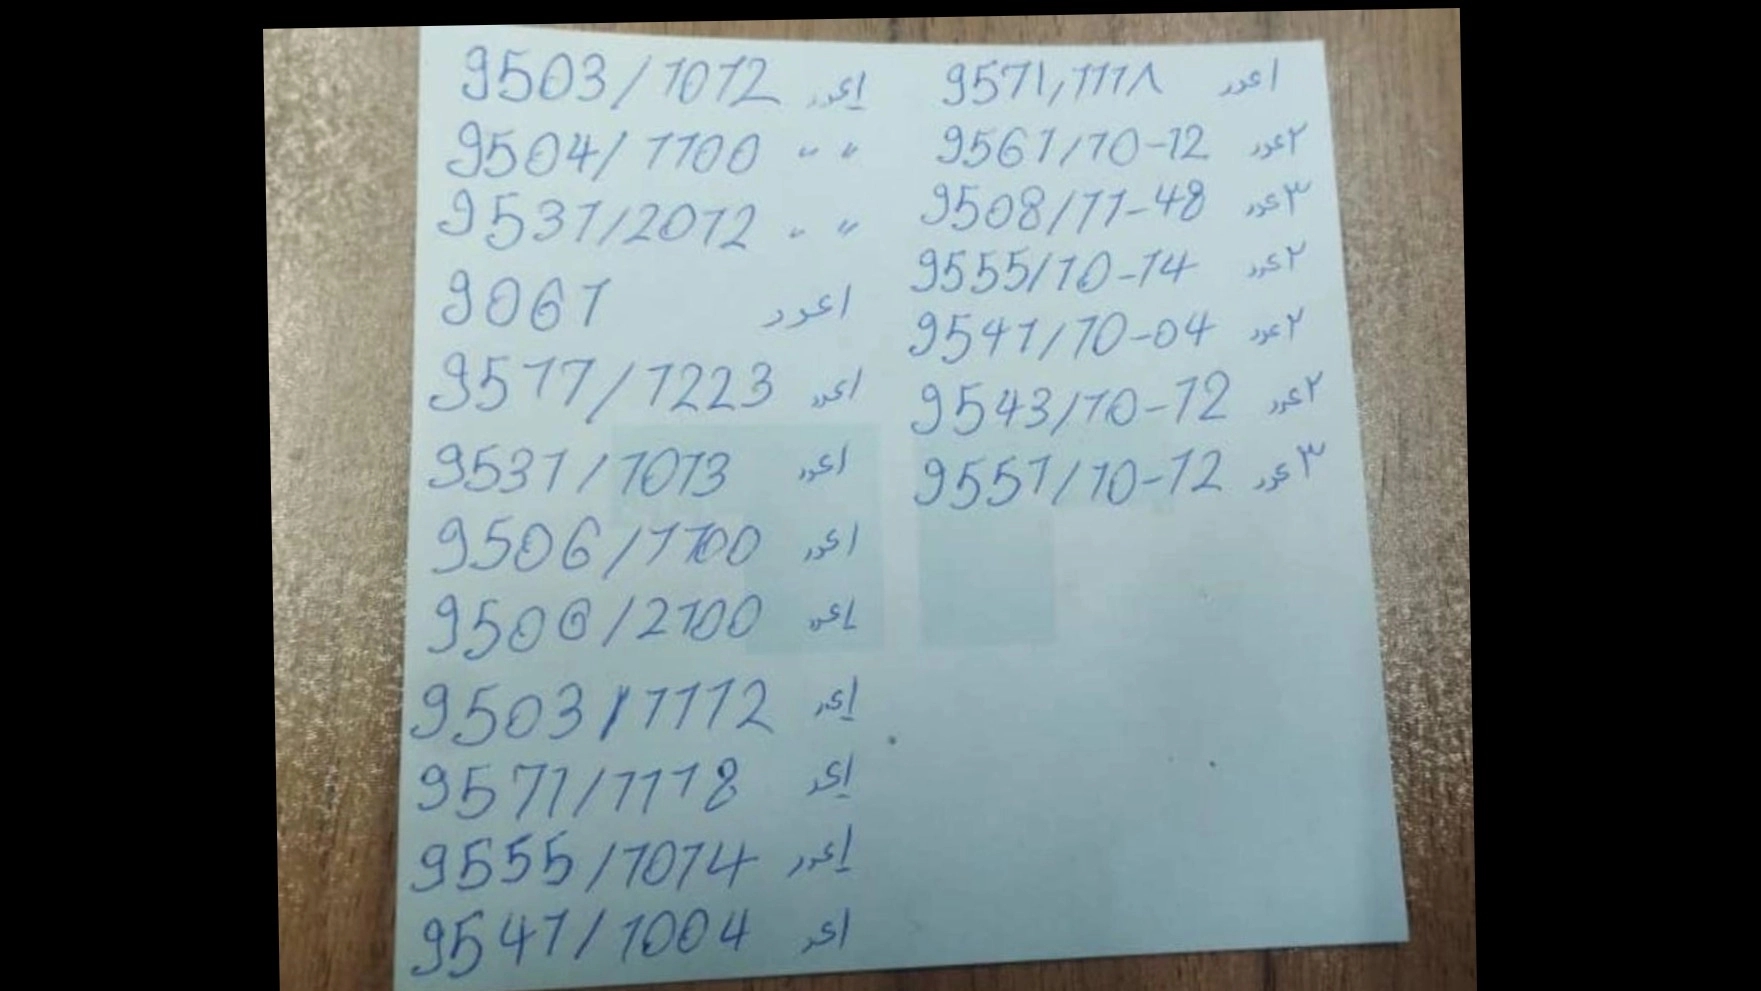 9503/1012 ۱عدد
9504/1100 〃 〃
9531/2012 〃 〃
9061 ۱عدد
9511/1223 ۱عدد
9531/1013 ۱عدد
9506/1100 ۱عدد
9506/2100 ۱عدد
9503/1112 ۱عدد
9571/1118 ۱عدد
9555/1014 ۱عدد
9541/1004 ۱عدد
9571/111۸ ۱عدد
9561/10-12 ۲عدد
9508/11-48 ۳عدد
9555/10-14 ۲عدد
9541/10-04 ۲عدد
9543/10-12 ۲عدد
9551/10-12 ۳عدد